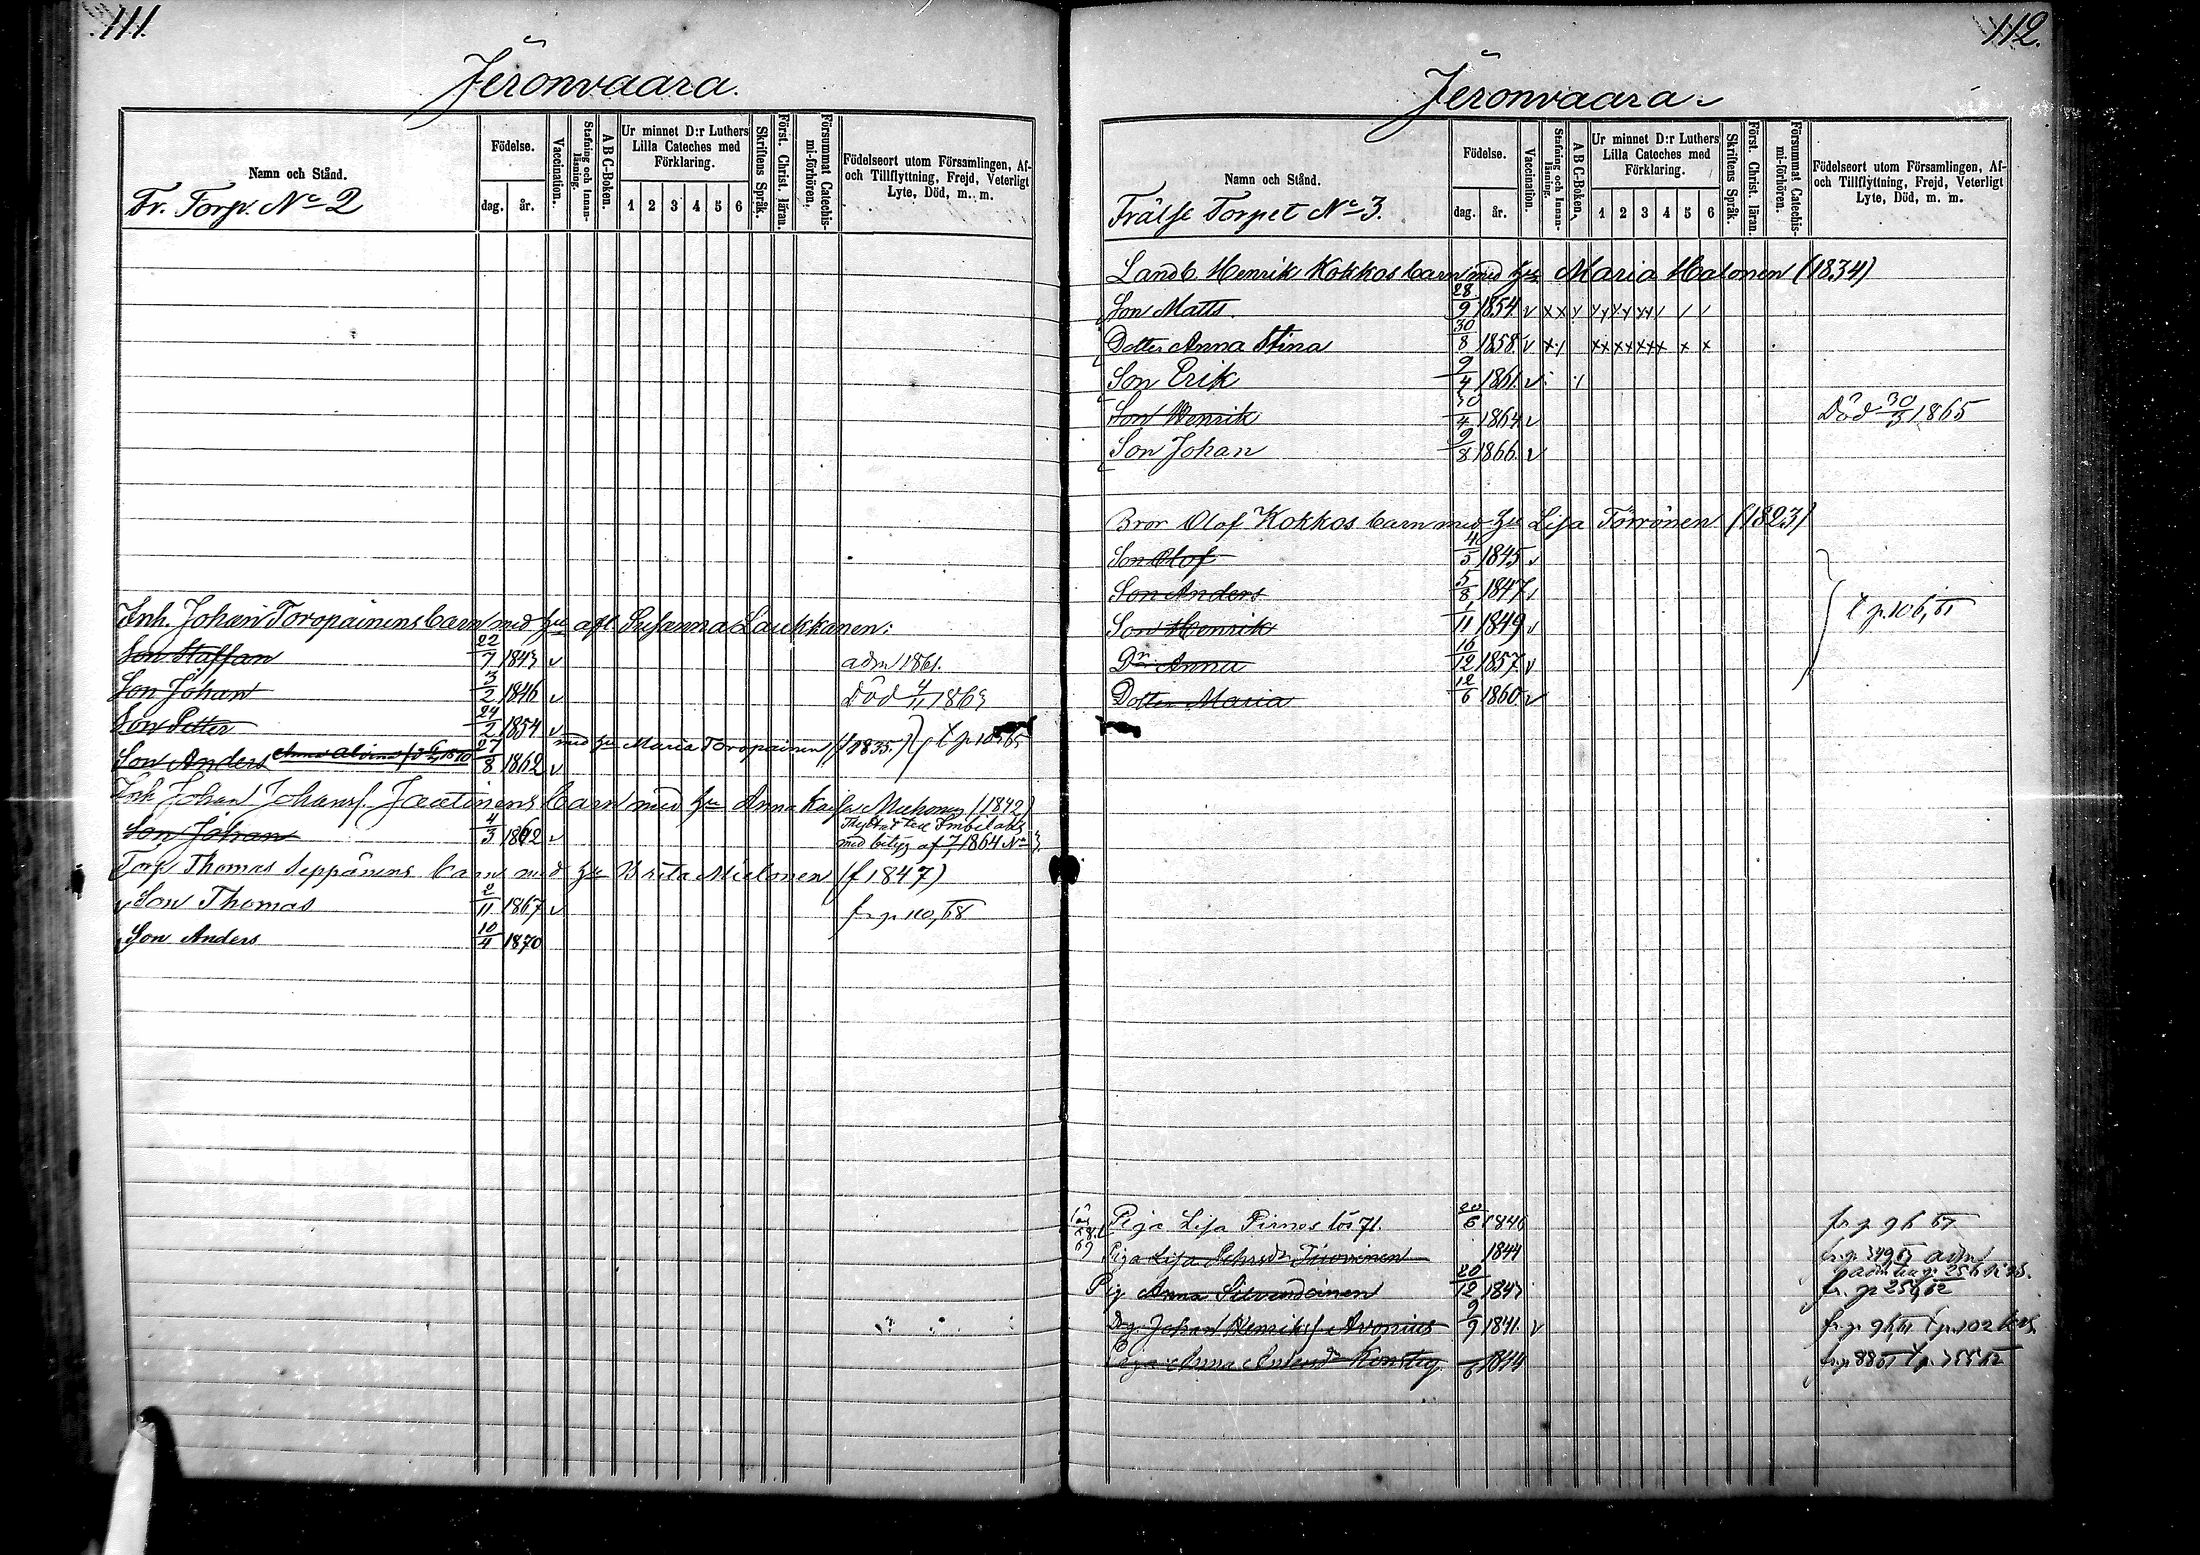 111.
Jeronvaara.
Namn och Stånd.
Fr. Torp. No 2
Födelse.
dag. år.
Vaccination.
Stafning och Innan-läsning.
A B C-Boken.
Ur minnet D:r Luthers Lilla Cateches med Förklaring.
1 2 3 4 5 6
Skriftens Språk.
Först. Christ. läran.
Försummat Catechis-mi-förhören.
Födelseort utom Församlingen, Af- och Tillflyttning, Frejd, Veterligt Lyte, Död, m. m.
Inh. Johan Toropainens barn med hu afl. Susanna Laukkanen:
Son Staffan 22/7 1843 v adm 1861.
Son Johan 3/2 1846 v Död 4/11 1863
Son Petter 24/2 1854 v
med hu Maria Toropainen (f 1835.)
Son Anders 27/8 1862 v
Inh Johan Johans. Jaatinens barn med hu Anna Kaisa (1842)
Son Johan 4/3 1862 v med betyg af 1864 No
Torp Thomas Seppänens barn med hu Brita Mielonen (f 1847)
Son Thomas 2/11 1867 v fr p 110, 68
Son Anders 10/4 1870
112.
Jeronvaara
Namn och Stånd.
Frälse Torpet No 3.
Födelse.
dag. år.
Vaccination.
Stafning och Innan-läsning.
A B C-Boken.
Ur minnet D:r Luthers Lilla Cateches med Förklaring.
1 2 3 4 5 6
Skriftens Språk.
Först. Christ. läran.
Försummat Catechis-mi-förhören.
Födelseort utom Församlingen, Af- och Tillflyttning, Frejd, Veterligt Lyte, Död, m. m.
Landb. Henrik Kokkos barn med hu Maria Halonen (1834)
Son Matts 28/9 1854 v
Dotter Anna Stina 30/8 1858 v
Son Erik 9/4 1861. v
Son Henrik 30/4 1864 v Död 30/3 1865
Son Johan 9/8 1866. v
Bror Olof Kokkos barn med hu Lisa Törrönen (1823)
Son Olof 4/5 1845 v
Son Anders 5/8 1847
Son Henrik 1/11 1849 v t p. 106, 61
Dr Anna 16/12 1857. v
Dotter Maria 12/6 1860. v
Piga Lisa Pirnes lös 71. 6 1846 fr p 96 67
Piga Lisa Tuovinen 1844
Pig Anna 20/12 1843
Drg. Johan Henriks. Avonius 9/9 1841. v
Piga Anna 1844